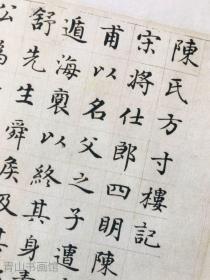 陳氏方寸樓記
宋將仕郎四明陳
甫以名父之子遭
遁海以終其身
舒先生舜矦及
公爲
青山书画馆